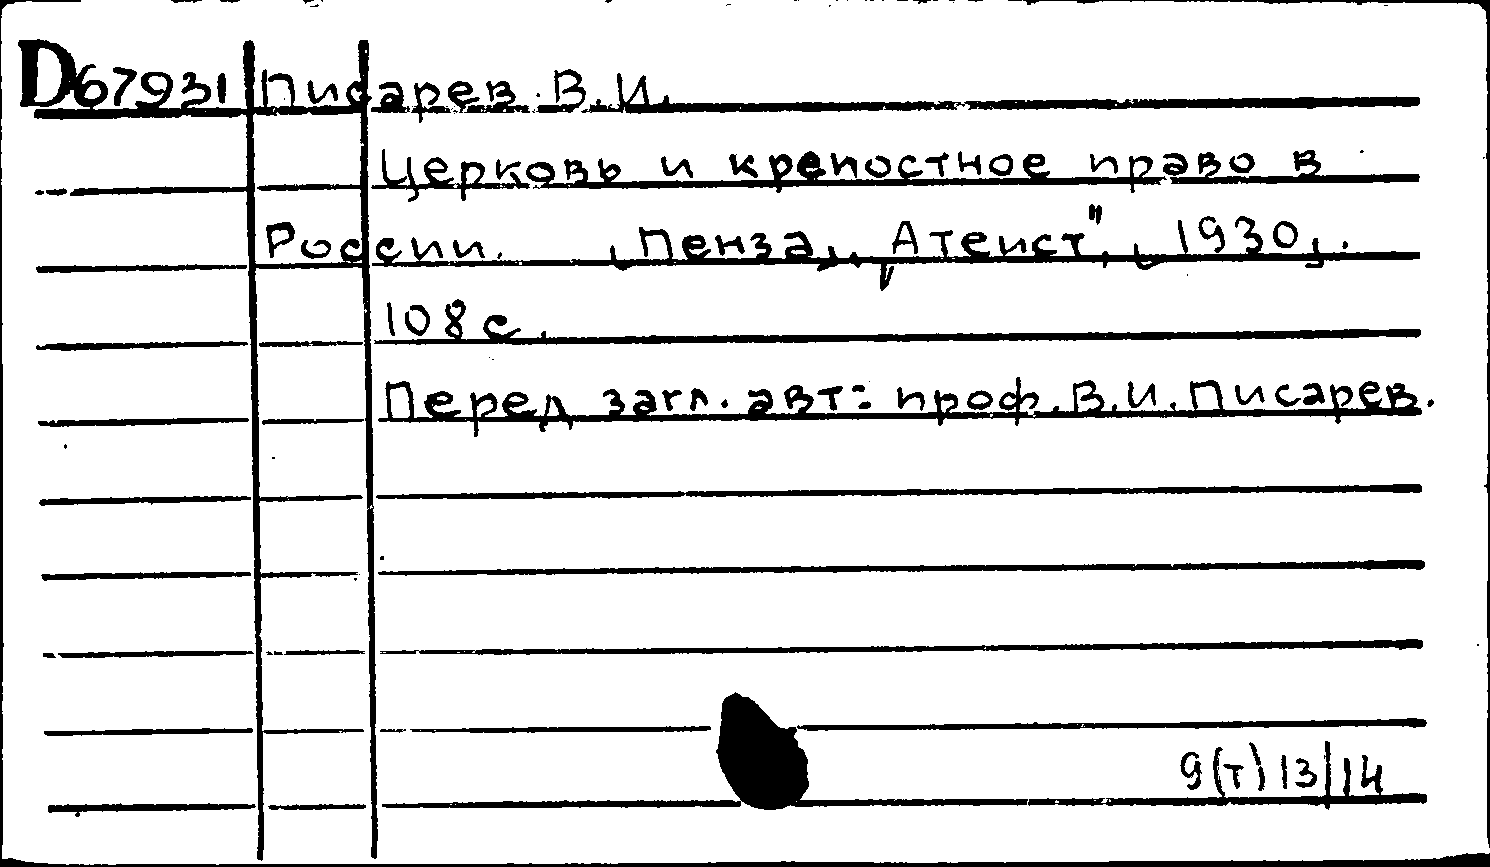 D67931 Писарев В.И.
Церковь и крепостное право в
России. [Пенза], „Атеист", [1930].
108 с.
Перед загл. авт: проф. В.И. Писарев.
9(т)13|14